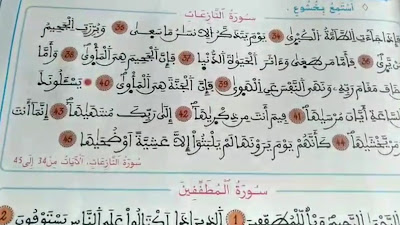 أَسْتَمِعُ بِخُشُوعٍ
سورَةُ النَّازِعَاتِ
فَإِذَا جَآءَتِ الطَّآمَّةُ الْكُبْرَىٰ 34 يَوْمَ يَتَذَكَّرُ الْإِنسَٰنُ مَا سَعَىٰ 35 وَبُرِّزَتِ الْجَحِيمُ
يَرَىٰ 36 فَأَمَّا مَن طَغَىٰ وَءَاثَرَ الْحَيَوٰةَ الدُّنْيَا 37 فَإِنَّ الْجَحِيمَ هِيَ الْمَأْوَىٰ 38 وَأَمَّا
خَافَ مَقَامَ رَبِّهِ وَنَهَى النَّفْسَ عَنِ الْهَوَىٰ 39 فَإِنَّ الْجَنَّةَ هِيَ الْمَأْوَىٰ 40 يَسْـَٔلُونَكَ
السَّاعَةِ أَيَّانَ مُرْسَىٰهَا 41 فِيمَ أَنتَ مِن ذِكْرَىٰهَآ 42 إِلَىٰ رَبِّكَ مُنتَهَىٰهَآ 43 إِنَّمَآ أَنتَ
مَنْ يَّخْشَىٰهَا 44 كَأَنَّهُمْ يَوْمَ يَرَوْنَهَا لَمْ يَلْبَثُوٓا إِلَّا عَشِيَّةً أَوْ ضُحَىٰهَا 45
سورَةُ النَّازِعَاتِ، الْآيَاتُ مِنْ 34 إِلَى 45
سورَةُ الْمُطَفِّفِينَ
وَيْلٌ لِّلْمُطَفِّفِينَ 1 الَّذِينَ إِذَا اكْتَالُوا عَلَى النَّاسِ يَسْتَوْفُونَ 2